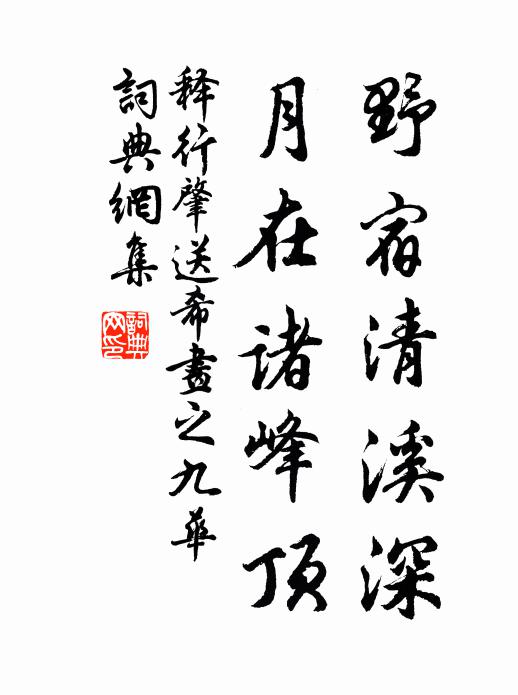 野宿清溪深
月在诸峰顶
释行肇送希晝之九華
詞典網集
詞典网印